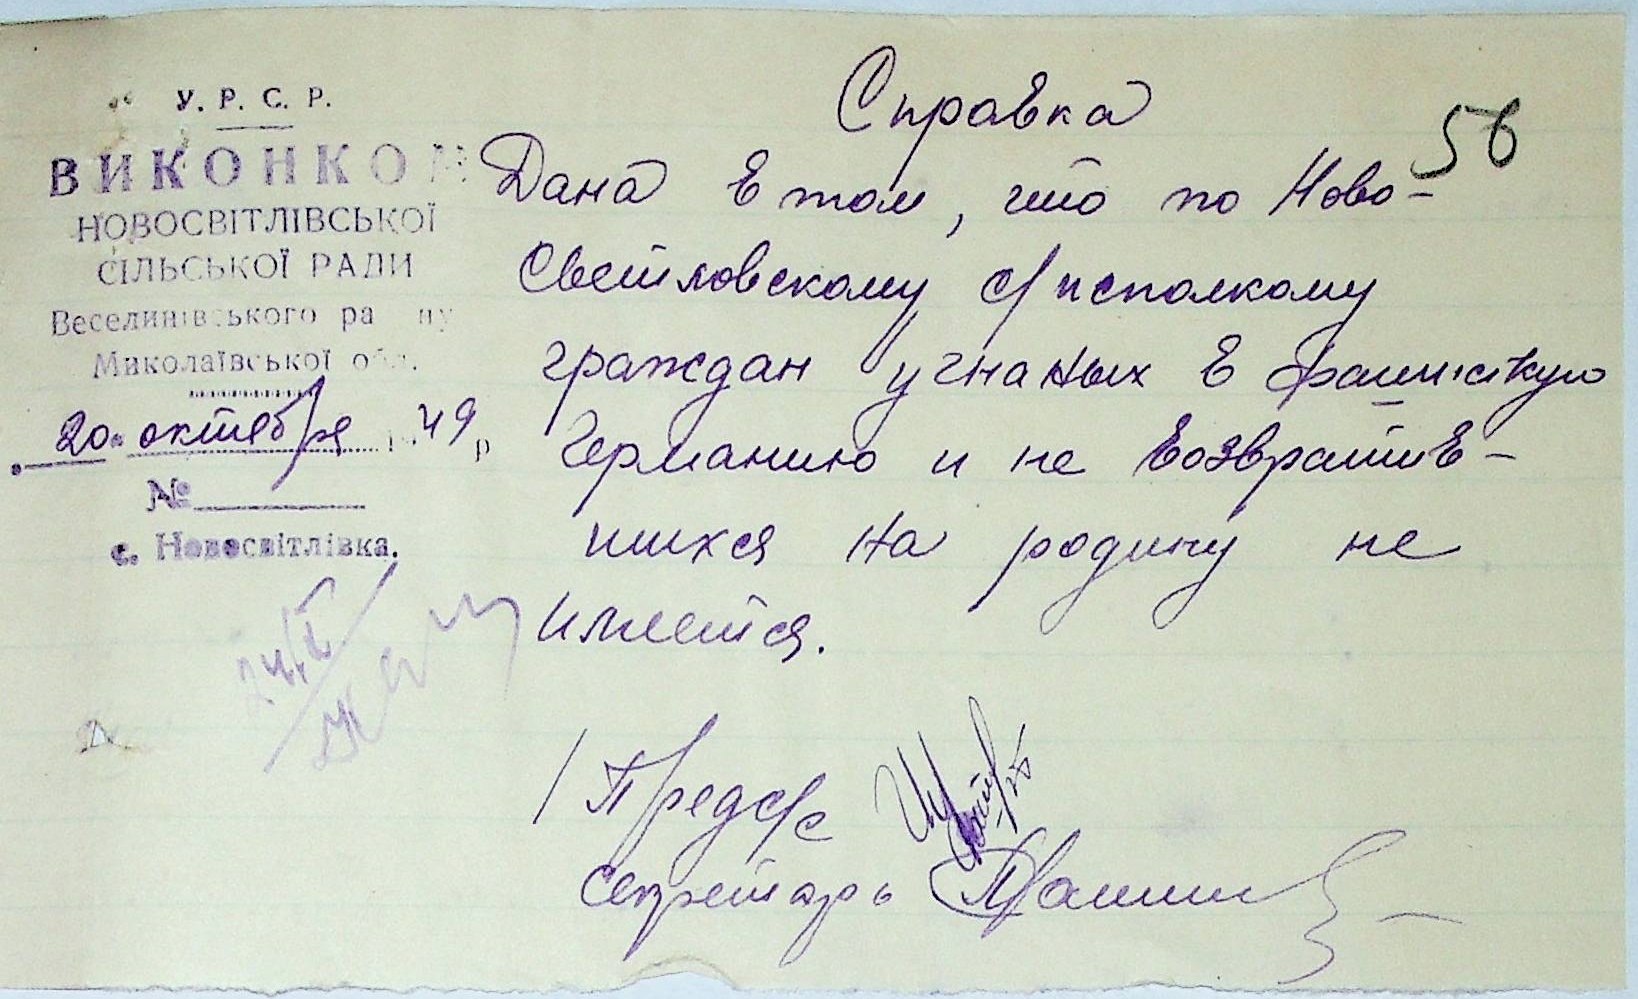 У. Р. С. Р.
ВИКОНКОМ
НОВОСВІТЛІВСЬКОЇ
СІЛЬСЬКОЇ РАДИ
Веселинівського ра ну
Миколаївської обл.
20 октября 49 р
№
с. Новосвітлівка.
56
Справка
Дана в том, что по Ново-
Светловскому с/исполкому
граждан угнаных в фашисткую
Германию и не возвратив-
шихся на родину не
имеется.
Предс/с
секретарь